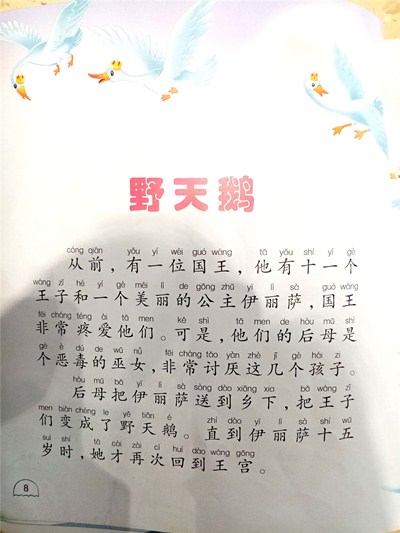 野天鹅
cóng qián yǒu yí wèi guó wáng tā yǒu shí yí gè
从前，有一位国王，他有十一个
wáng zǐ hé yí gè měi lì de gōng zhǔ yī lì sà guó wáng
王子和一个美丽的公主伊丽萨，国王
fēi cháng téng ài tā men kě shì tā men de hòu mǔ shì
非常疼爱他们。可是，他们的后母是
gè è dú de wū nǚ fēi cháng tǎo yàn zhè jǐ gè hái zi
个恶毒的巫女，非常讨厌这几个孩子。
hòu mǔ bǎ yī lì sà sòng dào xiāng xià bǎ wáng zǐ
后母把伊丽萨送到乡下，把王子
men biàn chéng le yě tiān é zhí dào yī lì sà shí wǔ
们变成了野天鹅。直到伊丽萨十五
suì shí tā cái zài cì huí dào wáng gōng
岁时，她才再次回到王宫。
8